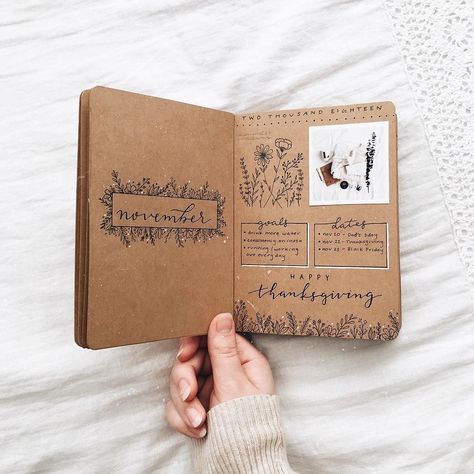 november
TWO THOUSAND EIGHTEEN
goals
• drink more water
• running/working
out everyday
dates
• nov 20 - Dad's bday
• nov 22 - Thanksgiving
• nov 23 - Black Friday
HAPPY
thanksgiving